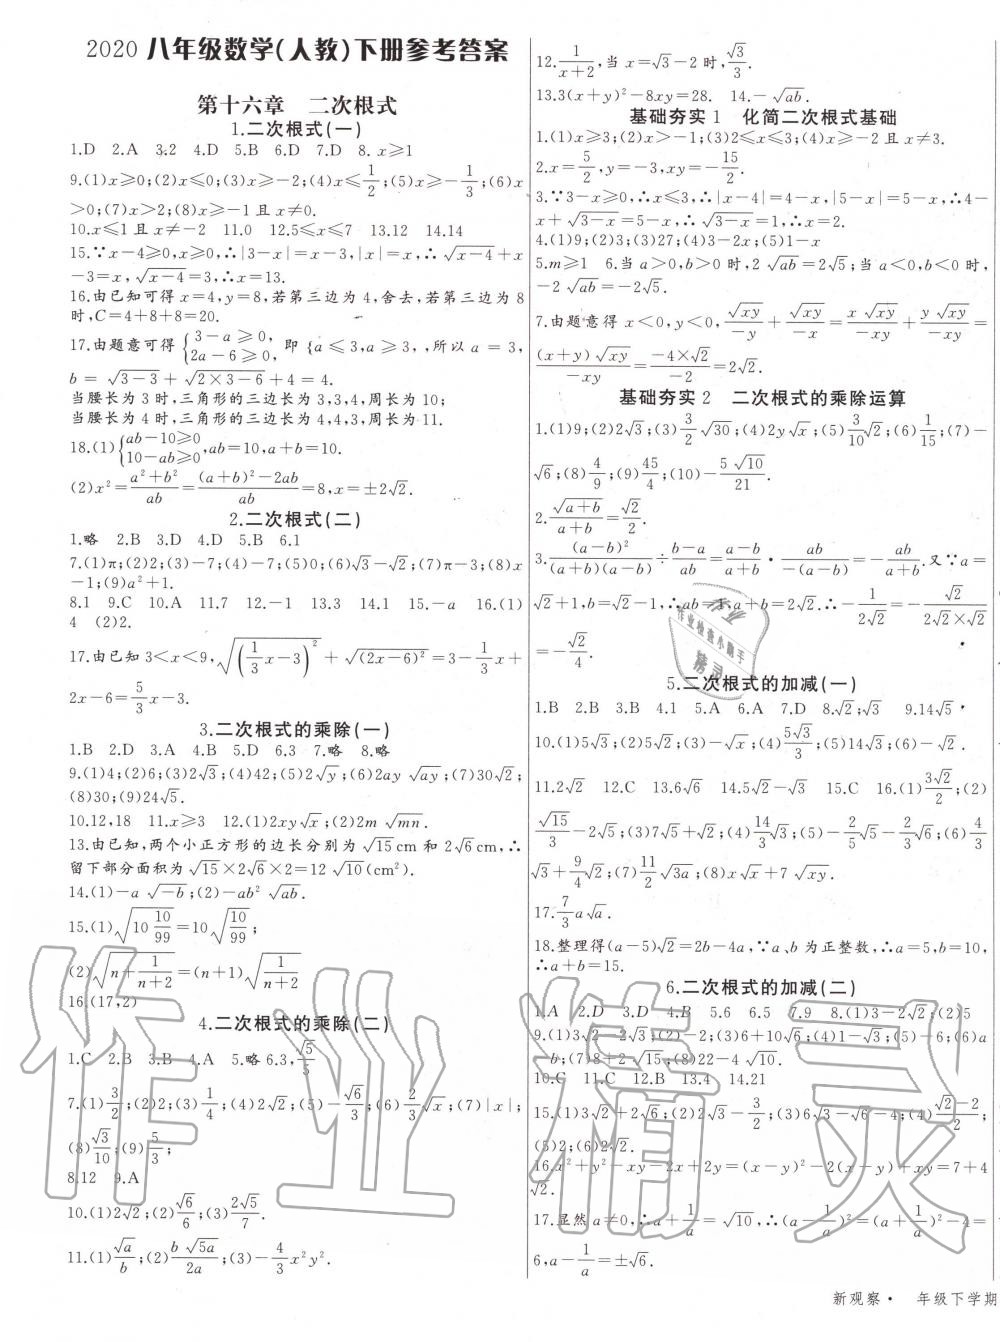 2020 八年级数学(人教)下册参考答案
第十六章 二次根式
1.二次根式(一)
1.D 2.A 3.2 4.D 5.B 6.D 7.D 8. x≥1
9.(1)x≥0;(2)x≤0;(3)x≥-2;(4)x≤1/2;(5)x≥-1/3;(6)x
>0;(7)x>2;(8)x≥-1且x≠0.
10.x≤1且x≠-2 11.0 12.5≤x≤7 13.12 14.14
15.∵x-4≥0,x≥0,∴|3-x|=x-3,|x|=x,∴√(x-4)+x
-3=x,√(x-4)=3,∴x=13.
16.由已知可得x=4,y=8,若第三边为4,舍去,若第三边为8
时,C=4+8+8=20.
17.由题意可得{3-a≥0, 2a-6≥0, 即{a≤3,a≥3,,所以a=3,
b=√(3-3)+√(2×3-6)+4=4.
当腰长为3时,三角形的三边长为3,3,4,周长为10;
当腰长为4时,三角形的三边长为4,4,3,周长为11.
18.(1){ab-10≥0 10-ab≥0,ab=10,a+b=10.
(2)x²=(a²+b²)/ab=((a+b)²-2ab)/ab=8,x=±2√2.
2.二次根式(二)
1.略 2.B 3.D 4.D 5.B 6.1
7.(1)π;(2)2;(3)-7;(4)-7;(5)0;(6)√3-√2;(7)π-3;(8)x
-1;(9)a²+1.
8.1 9.C 10.A 11.7 12.-1 13.3 14.1 15.-a 16.(1)
4 (2)2.
17.由已知3<x<9,√((1/3x-3)²)+√((2x-6)²)=3-1/3x+
2x-6=5/3x-3.
3.二次根式的乘除(一)
1.B 2.D 3.A 4.B 5.D 6.3 7.略 8.略
9.(1)4;(2)6;(3)2√3;(4)42;(5)2√y;(6)2ay√(ay);(7)30√2;
(8)30;(9)24√5.
10.12,18 11.x≥3 12.(1)2xy√x;(2)2m√(mn).
13.由已知,两个小正方形的边长分别为√15cm和2√6cm,∴
留下部分面积为√15×2√6×2=12√10(cm²).
14.(1)-a√(-b);(2)-ab²√(ab).
15.(1)√(10 10/99)=10√(10/99);
(2)√(n+1/(n+2))=(n+1)√(1/(n+2))
16.(17,2)
4.二次根式的乘除(二)
1.C 2.B 3.B 4.A 5.略 6.3,√5/5
7.(1)3/2;(2)2;(3)1/4;(4)2√2;(5)-√6/3;(6)2/3√x;(7)|x|;
(8)√3/10;(9)5/3;
8.12 9.A
10.(1)2√2;(2)√6/6;(3)2√5/7.
11.(1)√a/b;(2)b√(5a)/2a;(3)-4/3x²y².
12.1/(x+2),当x=√3-2时,√3/3.
13.3(x+y)²-8xy=28. 14.-√(ab).
基础夯实1 化简二次根式基础
1.(1)x≥3;(2)x>-1;(3)2≤x≤3;(4)x≥-2且x≠3.
2.x=5/2,y=-3,xy=-15/2.
3.∵3-x≥0,∴x≤3,∴|x-4|=4-x,|5-x|=5-x,∴4-
x+√(3-x)=5-x,∴√(3-x)=1,∴x=2.
4.(1)9;(2)3;(3)27;(4)3-2x;(5)1-x
5.m≥1 6.当a>0,b>0时,2√(ab)=2√5;当a<0,b<0时,
-2√(ab)=-2√5.
7.由题意得x<0,y<0,√(xy)/-y+√(xy)/-x=x√(xy)/-xy+y√(xy)/-xy=
(x+y)√(xy)/-xy=-4×√2/-2=2√2.
基础夯实2 二次根式的乘除运算
1.(1)9;(2)2√3;(3)3/2√30;(4)2y√x;(5)3/10√2;(6)1/15;(7)-
√6;(8)4/9;(9)45/4;(10)-5√10/21.
2.√(a+b)/(a+b)=√2/2.
3.(a-b)²/((a+b)(a-b))÷(b-a)/ab=(a-b)/(a+b)·ab/(-(a-b))=-ab/(a+b).又∵a=
√2+1,b=√2-1,∴ab=1,a+b=2√2.∴-1/(2√2)=-√2/(2√2×√2)
=-√2/4.
5.二次根式的加减(一)
1.B 2.B 3.B 4.1 5.A 6.A 7.D 8.√2;√3 9.14√5
10.(1)5√3;(2)5√2;(3)-√x;(4)5√3/3;(5)14√3;(6)-√2.
11.2√2 12.C 13.6√6 14.5√2-√3 15.C 16.(1)3√2/2;(2)
√15/3-2√5;(3)7√5+√2;(4)14/3√3;(5)-2/5√5-2/3√6;(6)4/3
√3+9/4√2;(7)11/2√(3a);(8)x√x+7√(xy).
17.7/3a√a.
18.整理得(a-5)√2=2b-4a,∵a、b为正整数,∴a=5,b=10,
∴a+b=15.
6.二次根式的加减(二)
1.A 2.D 3.D 4.B 5.6 6.5 7.9 8.(1)3-2√2;(2)5
9.(1)3√2-2√3;(2)-2;(3)6+10√6;(4)1-√3;(5)-6;(6)a
-b;(7)8+2√15;(8)22-4√10.
10.C 11.C 12.B 13.4 14.21
15.(1)3√2+2√6;(2)2√3-3/2;(3)6√3-√6-4;(4)(√2-2)/2;
(5)2;(6)2√2.
16.x²+y²-xy-2x+2y=(x-y)²-2(x-y)+xy=7+4
√2.
17.显然a≠0,∴a+1/a=√10,∴(a-1/a)²=(a+1/a)²-4=
6,a-1/a=±√6.
新观察· 年级下学期
作业检查小助手
精灵
作业精灵